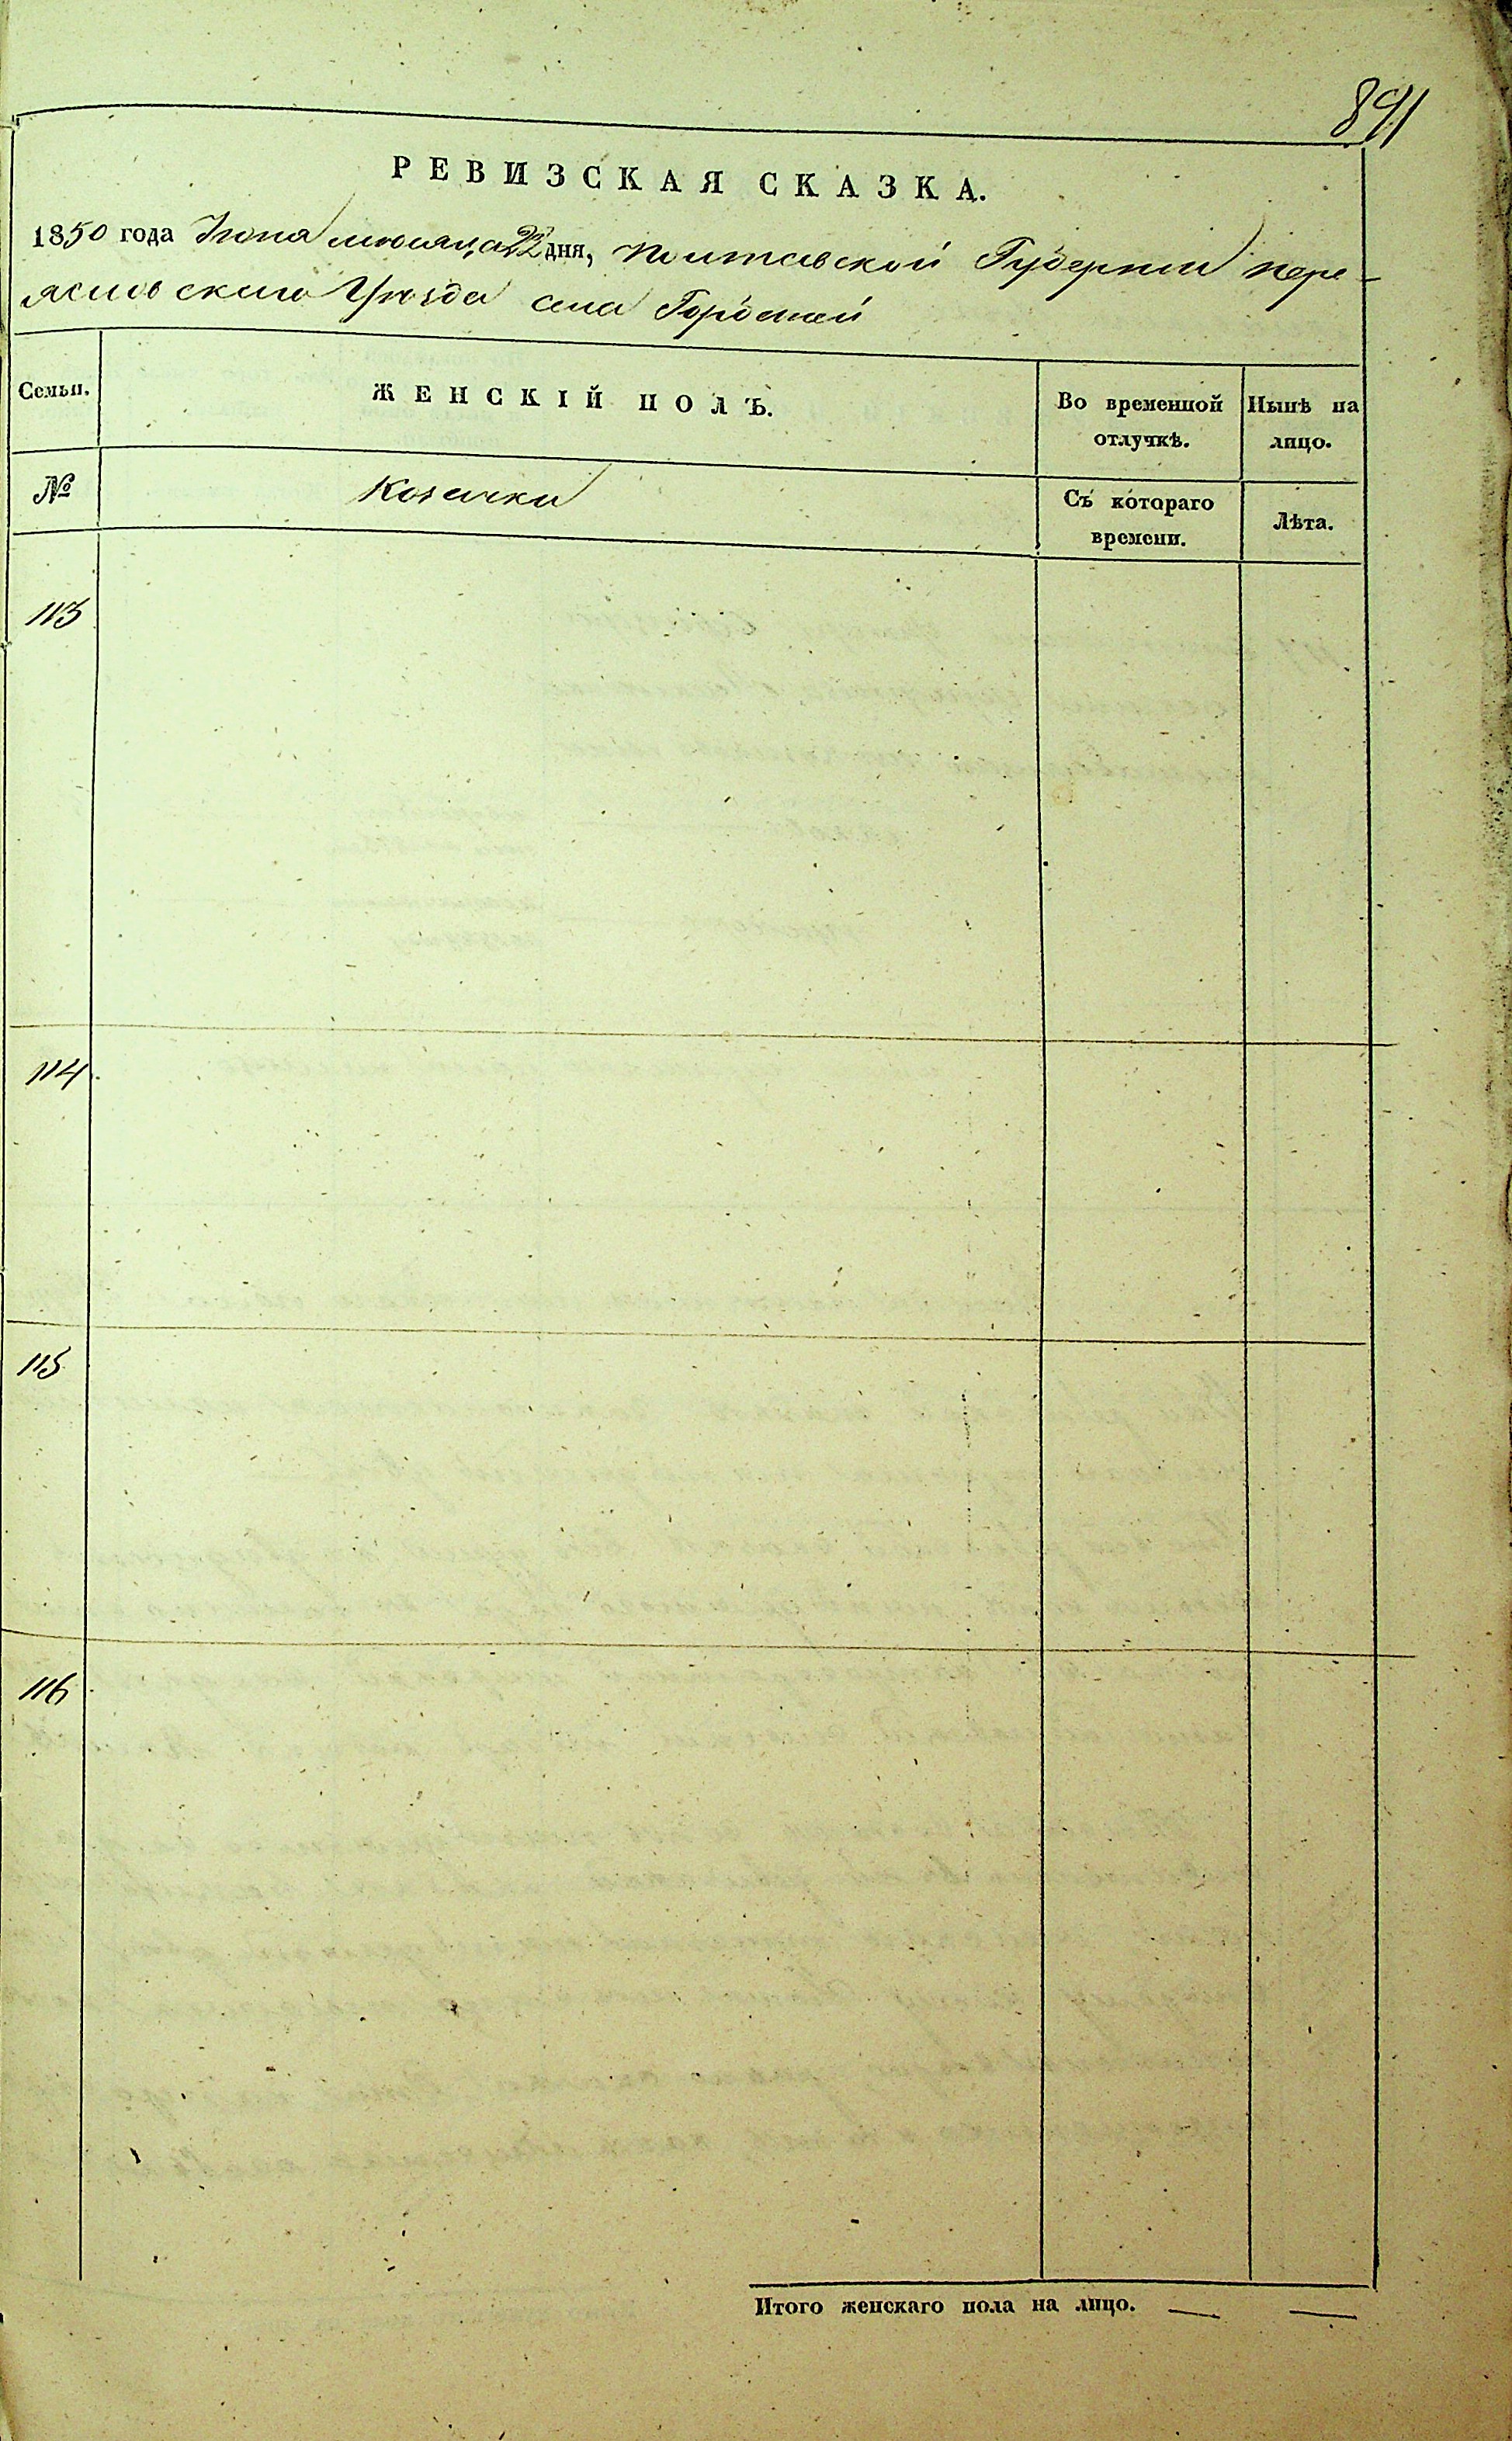 891
РЕВИЗСКАЯ СКАЗКА.
1850 года Июня месяца 22 дня, Полтавской Губернии Пере-
яславского Уезда села
Семьи.
ЖЕНСКІЙ ПОЛЪ.
Во временной
отлучкѣ.
Нынѣ на
лицо.
№
Козачки
Съ котораго
времени.
Лѣта.
113
114
115
116
Итого женскаго пола на лицо. — —